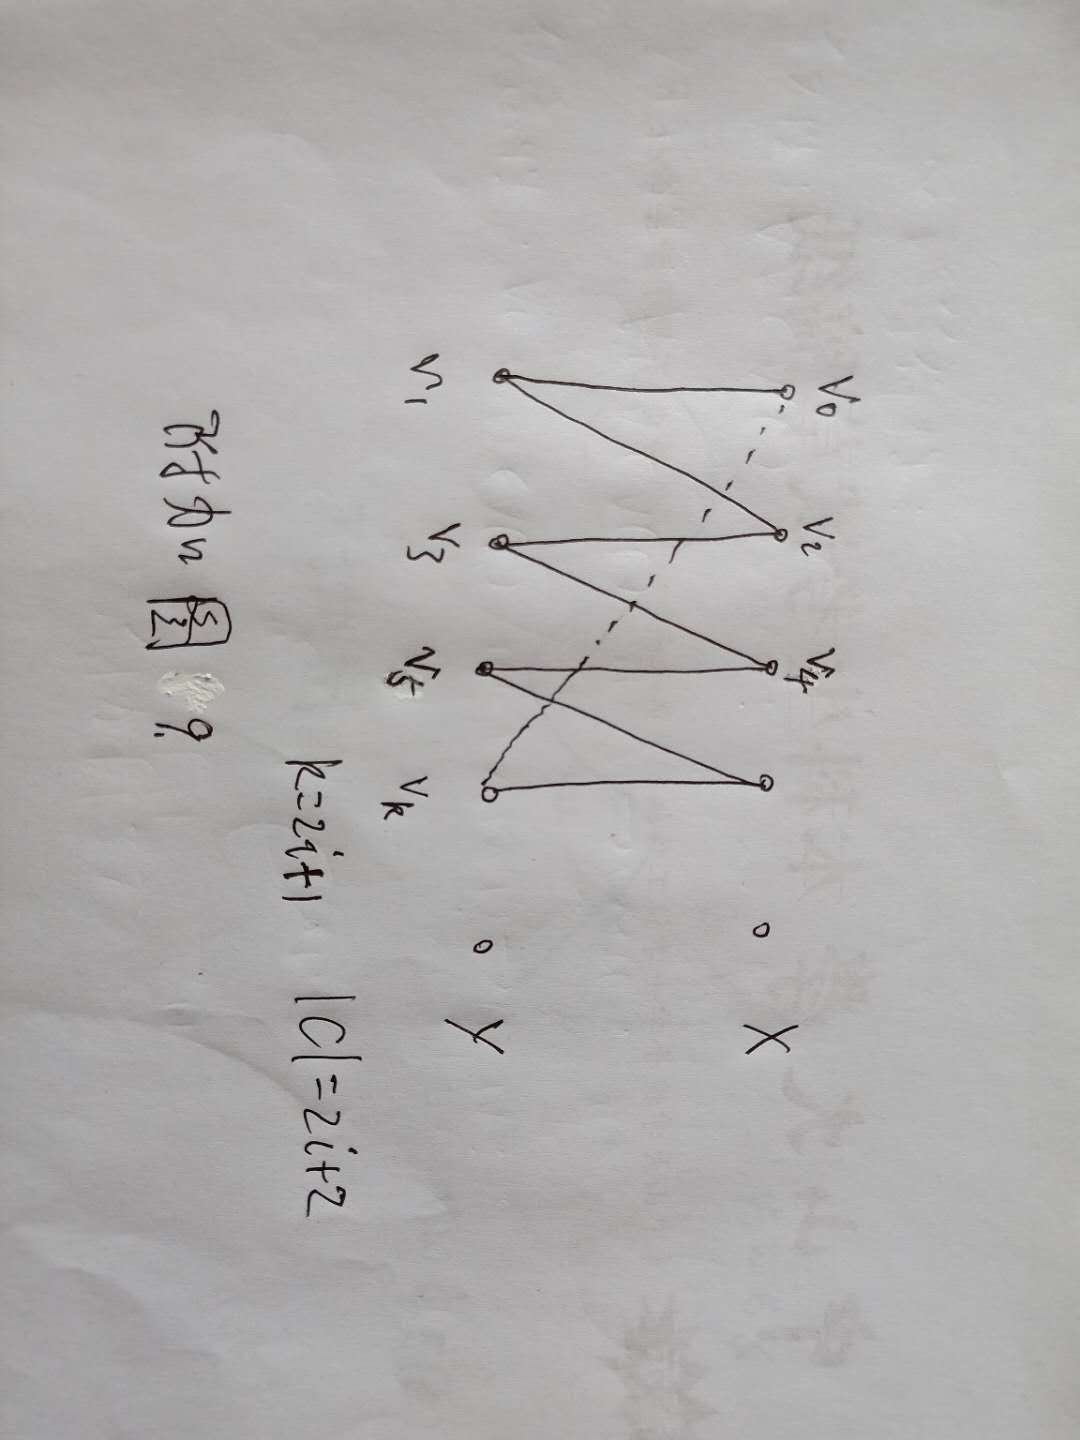 V0 V2 V4
X
Y
V1 V3 V5 Vk
k=2i+1 |C|=2i+2
附加图 9.